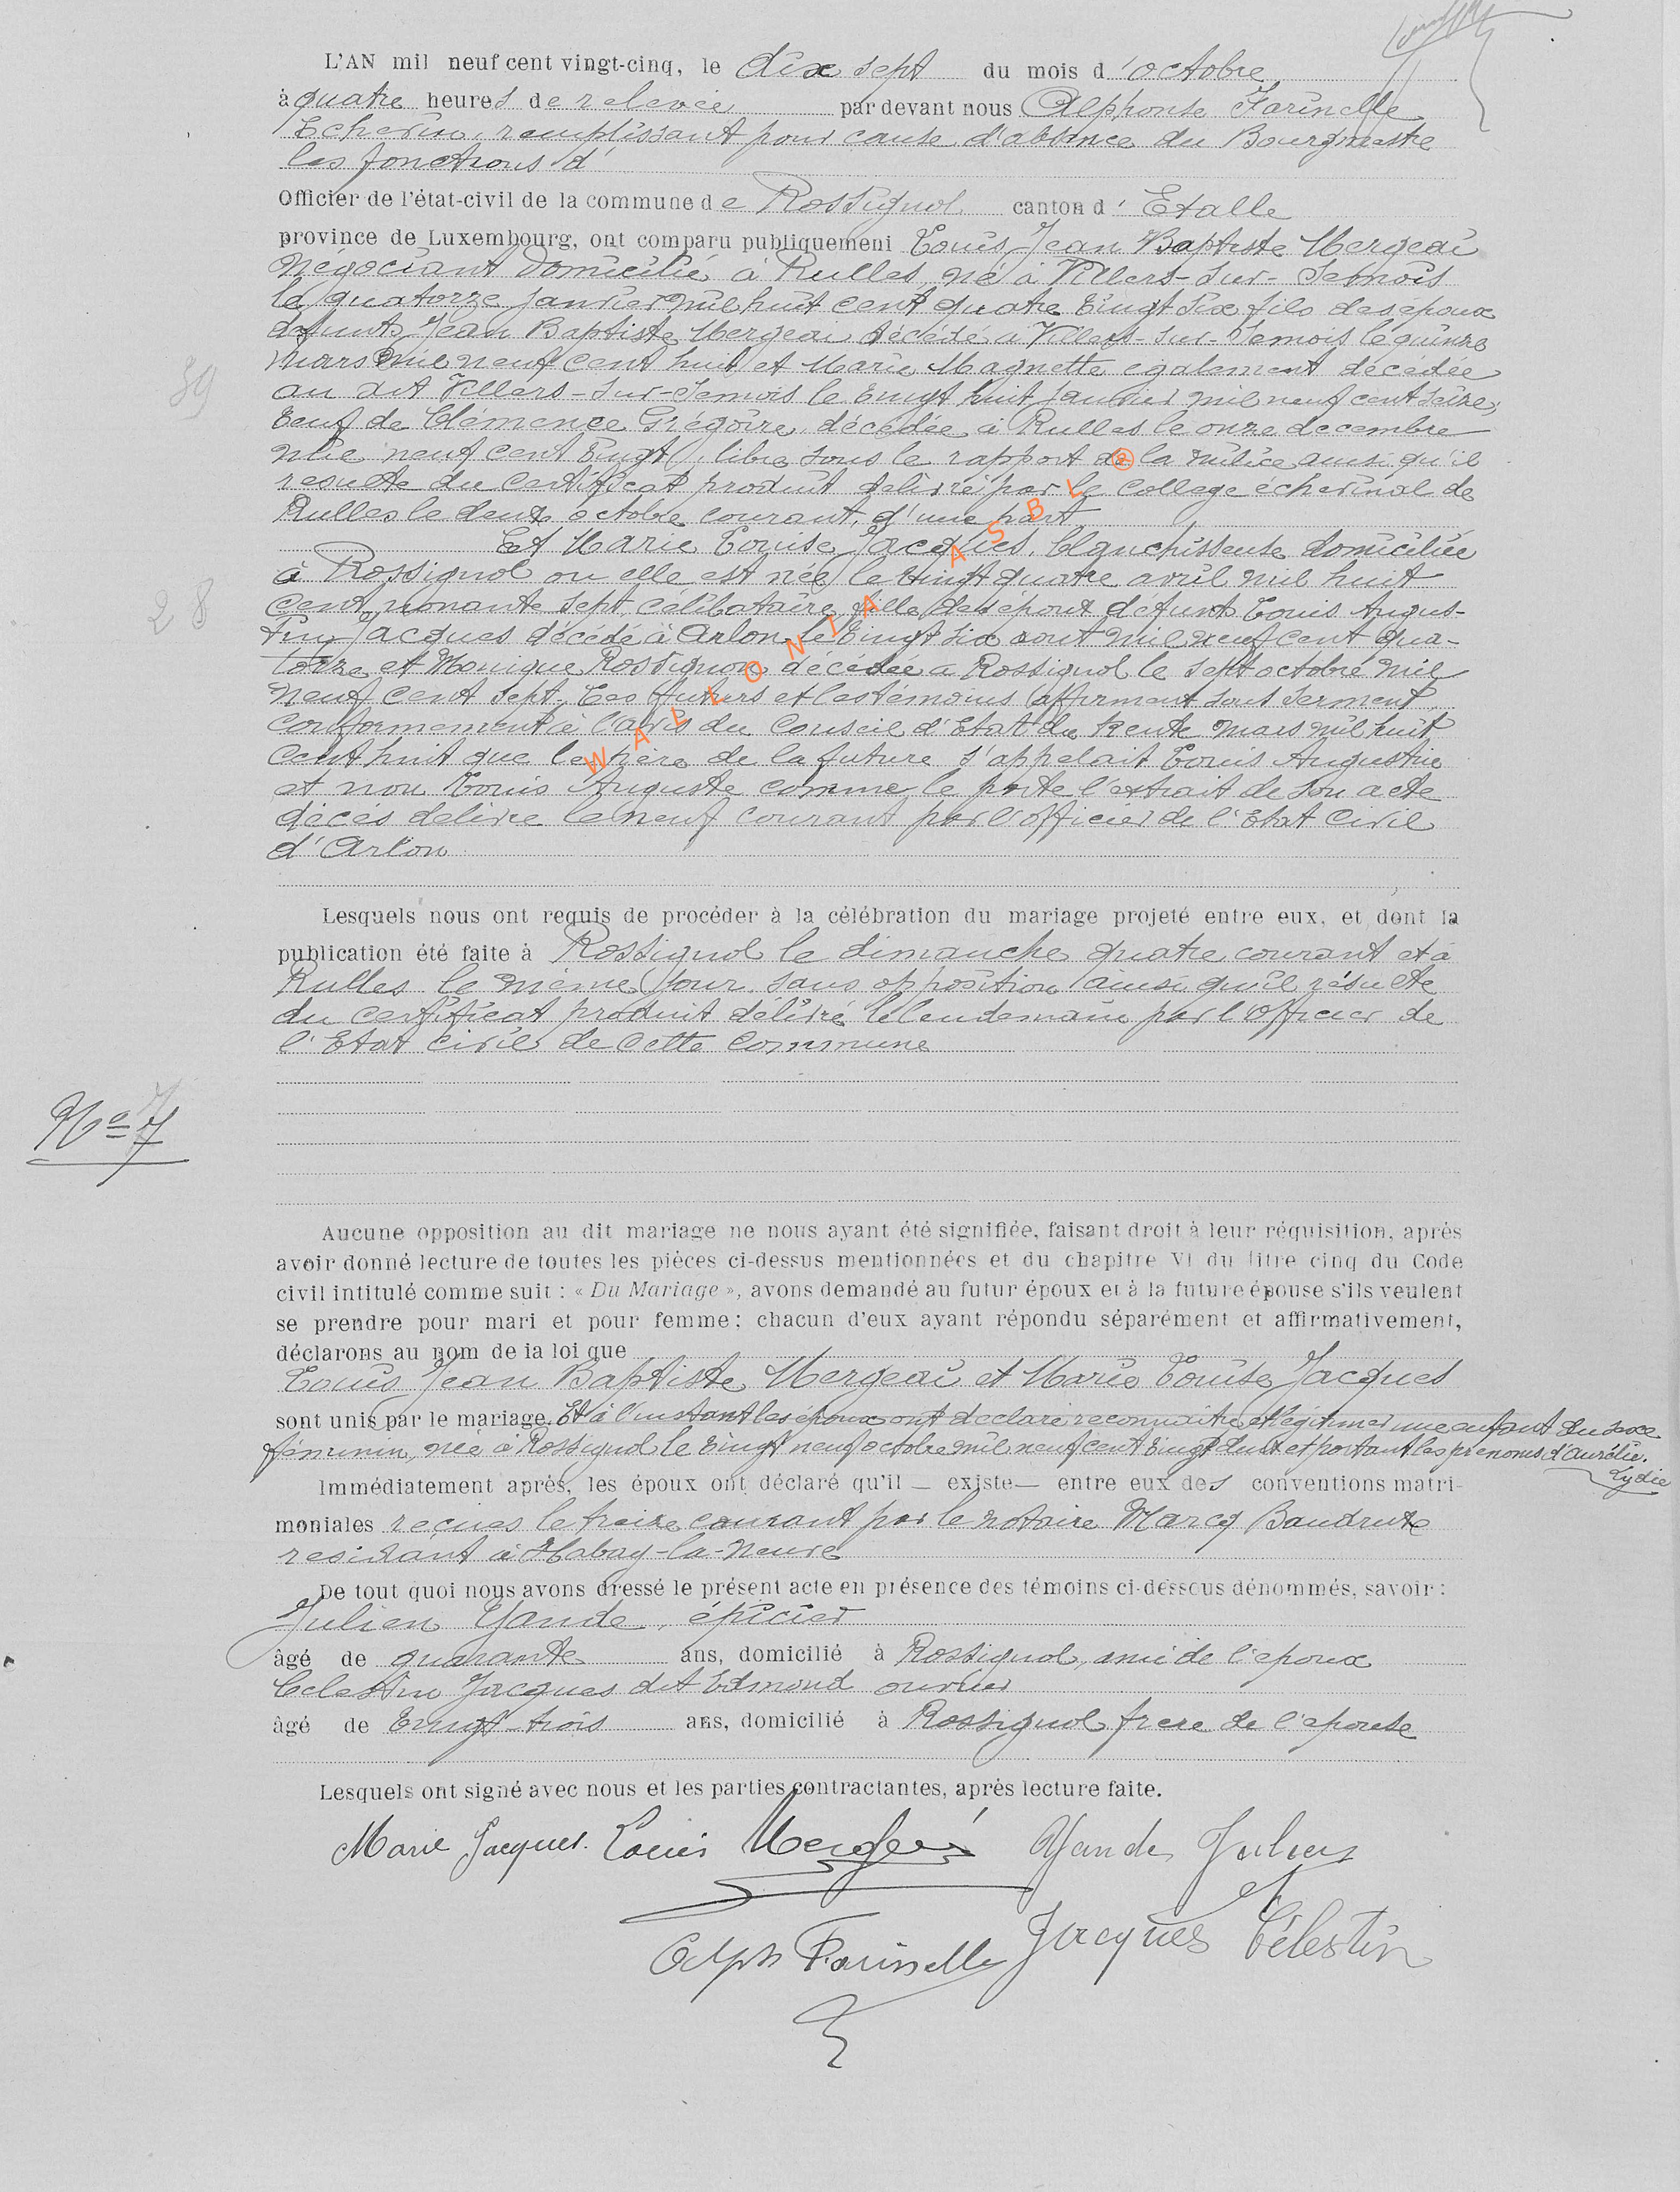 L'AN mil neuf cent vingt-cinq, le dix sept du mois d'octobre
à quatre heures de relevée par devant nous Alphonse Farinelle
Echevin, remplissant pour cause d'absence du Bourgmestre
les fonctions d'
Officier de l'état-civil de la commune de Rossignol canton d'Etalle
province de Luxembourg, ont comparu publiquement Louis Jean Baptiste Mergeai
Négociant domicilié à Rulles, né à Villers-sur-Semois
le quatorze janvier mil huit cent quatre vingt six fils des époux
défunts Jean Baptiste Mergeai décédé à Villers-sur-Semois le quinze
mars mil neuf cent huit et Marie Magnette egalement décédée
au dit Villers-sur-Semois le vingt huit janvier mil neuf cent seize,
veuf de Clémence Grégoire, décédée à Rulles le onze decembre
mil neuf cent vingt, libre sous le rapport de la milice ainsi qu'il
resulte du certificat produit délivré par le college échevinal de
Rulles le deux octobre courant, d'une part
Et Marie Louise Jacques, blanchisseuse domiciliée
à Rossignol ou elle est née le vingt quatre avril mil huit
cent nonante sept, célibataire fille des époux défunts Louis Augus-
tin Jacques décédé à Arlon le vingt six aout mil neuf cent qua-
torze et Monique Rossignon décédée à Rossignol le sept octobre mil
neuf cent sept. Les futurs et les témoins affirment sous serment,
conformement à l'avis du Conseil d'Etat du trente mars mil huit
cent huit que le père de la future s'appelait Louis Augustin
et non Louis Auguste comme le porte l'extrait de son acte
décès délivré le neuf courant par l'officier de l'Etat Civil
d'Arlon
39
28
WALLONIA ASBL
Lesquels nous ont requis de procéder à la célébration du mariage projeté entre eux, et dont la
publication été faite à Rossignol le dimanche quatre courant et à
Rulles le même jour sans opposition ainsi qu'il résulte
du certificat produit délivré le lendemain par l'officier de
l'Etat civil de cette commune
No 7
Aucune opposition au dit mariage ne nous ayant été signifiée, faisant droit à leur réquisition, après
avoir donné lecture de toutes les pièces ci-dessus mentionnées et du chapitre VI du titre cinq du Code
civil intitulé comme suit : « Du Mariage », avons demandé au futur époux et à la future épouse s'ils veulent
se prendre pour mari et pour femme : chacun d'eux ayant répondu séparément et affirmativement,
déclarons au nom de la loi que
Louis Jean Baptiste Mergeai et Marie Louise Jacques
sont unis par le mariage. Et à l'instant les époux ont déclaré reconnaitre et légitimer une enfant du sexe
féminin, née à Rossignol le vingt neuf octobre mil neuf cent vingt deux et portant les prénoms d'Aurélie.
Lydie
Immédiatement après, les époux ont déclaré qu'il — existe — entre eux des conventions matri-
moniales reçues le treize courant par le notaire Marcq Baudrux
residant à Habay-la-Neuve
De tout quoi nous avons dressé le présent acte en présence des témoins ci-dessous dénommés, savoir :
Julien Yande, épicier
âgé de quarante ans, domicilié à Rossignol, ami de l'époux
Celestin Jacques dit Edmond ouvrier
âgé de vingt-trois ans, domicilié à Rossignol frere de l'epouse
Lesquels ont signé avec nous et les parties contractantes, après lecture faite.
Marie Jacques. Louis Mergeai Yande Julien
Alph Farinelle Jacques Célestin